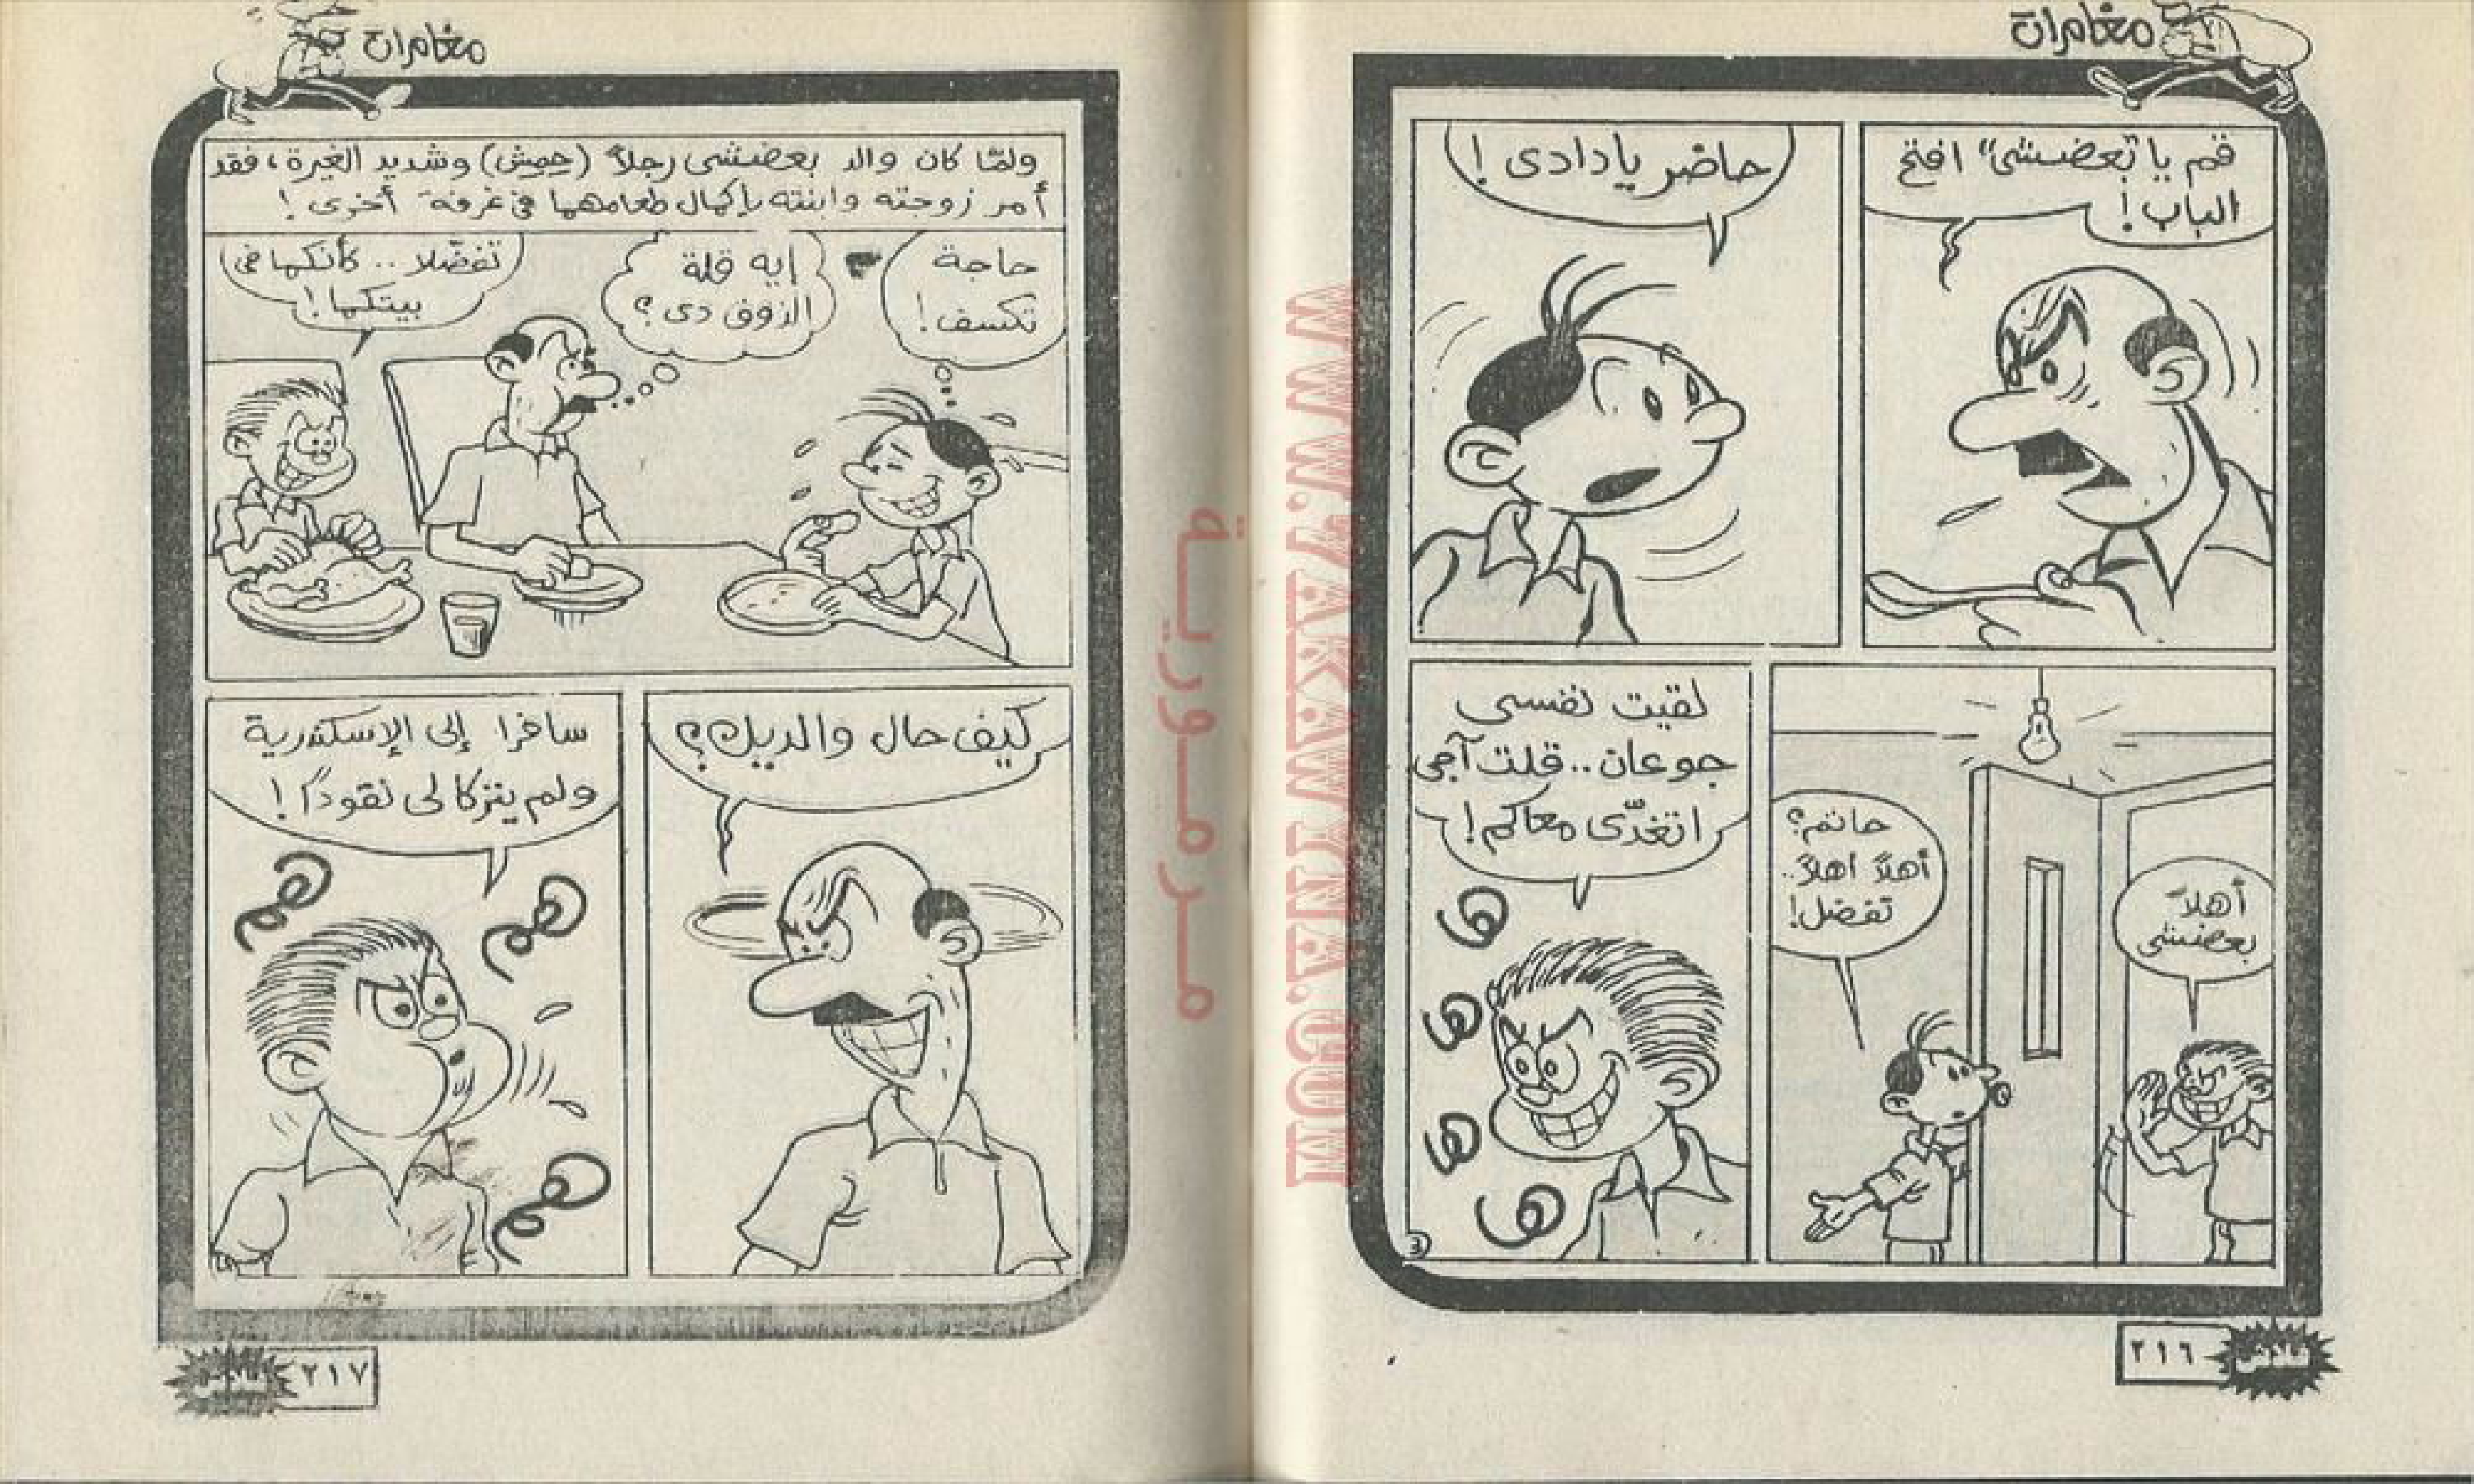 مغامرات
قم يا "بعضشى" افتح
الباب!
حاضر يا دادى!
أهلاً
بعضشى
حاتم؟
أهلاً أهلاً..
تفضل!
لقيت نفسى
جوعان.. قلت آجى
اتغدّى معاكم!
٢١٦
مغامرات
ولمّا كان والد بعضشى رجلاً (حمش) وشديد الغيرة، فقد
أمر زوجته وابنته بإكمال طعامهما فى غرفة أخرى!
حاجة
تكسف!
إيه قلة
الذوق دى؟
تفضّلا.. كأنكما فى
بيتكما!
كيف حال والديك؟
سافرا إلى الإسكندرية
ولم يتركا لى نقودًا!
٢١٧
مرمورية
WWW.ZAKAWYNA.COM